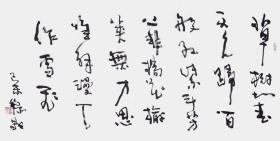 草樹知春
不久歸百
般紅紫斗芳
菲楊花榆
莢無才思
惟解漫天
作雪飛